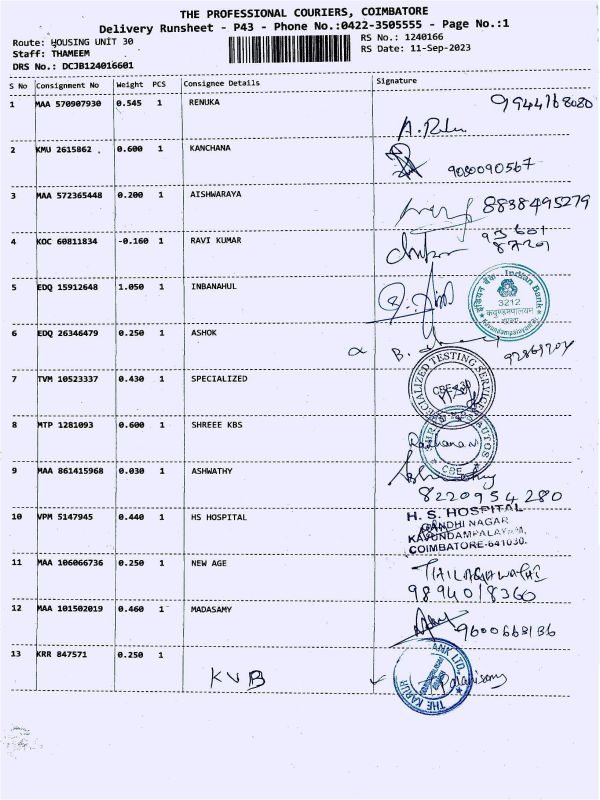 THE PROFESSIONAL COURIERS, COIMBATORE
Delivery Runsheet - P43 - Phone No.:0422-3505555 - Page No.:1
Route: HOUSING UNIT 30 RS No.: 1240166
Staff: THAMEEM RS Date: 11-Sep-2023
DRS No.: DCJB124016601
S No Consignment No Weight PCS Consignee Details Signature
1 MAA 570907930 0.545 1 RENUKA 9944168080
2 KMU 2615862 0.600 1 KANCHANA 9080090567
3 MAA 572365448 0.200 1 AISHWARAYA 8838495279
4 KOC 60811834 -0.160 1 RAVI KUMAR
5 EDQ 15912648 1.050 1 INBANAHUL
Indian Bank
3212
6 EDQ 26346479 0.250 1 ASHOK
7 TVM 10523337 0.430 1 SPECIALIZED
SPECIALIZED TESTING SERVICES
8 MTP 1281093 0.600 1 SHREEE KBS
CBE
9 MAA 861415968 0.030 1 ASHWATHY
8220954280
10 VPM 5147945 0.440 1 HS HOSPITAL
H. S. HOSPITAL
GANDHI NAGAR
KAVUNDAMPALAYAM,
COIMBATORE-641030.
11 MAA 106066736 0.250 1 NEW AGE
THILAGAWATHI
9894018360
12 MAA 101502019 0.460 1 MADASAMY 9600668136
13 KRR 847571 0.250 1
KVB
THE KARUR
BANK LTD.